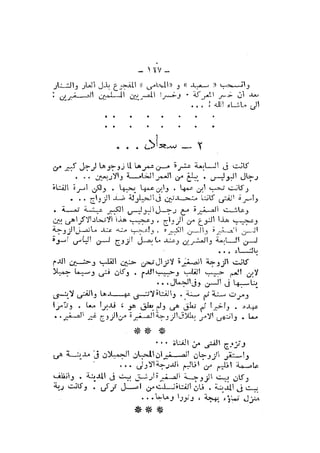 — ١٤٧ —
وانسحب « سعيد » و « المحامى » المفجوع بذل العار والشنار
بعد أن خسر المعركة . وخسرا المصريين المسلمين الصغيرين !
الى ماشاء الله ! ...
. . . . . .
. . . . . .
٢ — سعاد ...
كانت فى السابعة عشرة من عمرها لما زوجوها لرجل كبير من
رجال البوليس . يبلغ من العمر الخامسة والأربعين . . .
وكانت تحب ابن عمها . وابن عمها يحبها . ولكن أسرة الفتاة
وأسرة الفتى كانتا متحدتين فى الحيلولة ضد الزواج . . .
وعاشت الصغيرة مع رجل البوليس الكبير عيشة تعسة .
وعجيب هذا النوع من الزواج . وعجيب هذا الاتحاد الاكراهى بين
السن الصغيرة والسن الكبيرة . والعجب منه عند ماتصل الزوجة
لسن السابعة والعشرين وعند ما يصل الزوج لسن اليأس أسوة
بالنساء ...
كانت الزوجة الصغيرة لاتزال تحن حنين القلب وحنين الدم
لابن العم حبيب القلب وحبيب الدم . وكان فتى وسيما جميلا
يناسبها فى السن وفى الجمال ...
ومرت سنة ثم سنة . والفتاة لاتنسى عهدها والفتى لاينسى
عهده . وأخيرا لم تطق هى ولم يطق هو ، فدبرا معا . وتآمرا
معا . وانتهى الأمر بطلاق الزوجة الصغيرة من الزوج غير الصغير ..
* * *
وتزوج الفتى من الفتاة ...
واستقر الزوجان الصغيران المحبان الجميلان فى مدينة هى
عاصمة اقليم من أقاليم الدرجة الأولى ...
وكان بيت الزوجة الصغيرة أرشق بيت فى المدينة . وأنظف
بيت فى المدينة . فان الفتاة كانت من أصل تركى . وكانت ربة
منزل تملؤه بهجة ، ونورا وهاجا ...
* * *